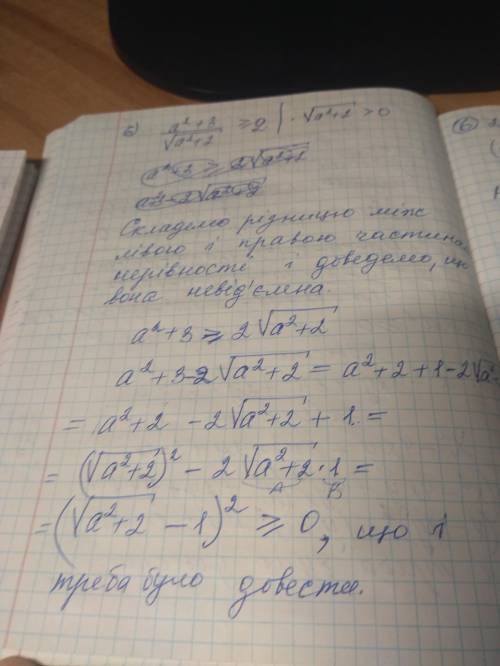 б) (a²+3)/√(a²+2) ≥ 2 | · √(a²+2) > 0
Складемо різницю між
лівою і правою частина
нерівності і доведемо, що
вона невід'ємна.
a²+3 ≥ 2√(a²+2)
a²+3-2√(a²+2) = a²+2+1-2√a²
= a²+2 -2√(a²+2) + 1 =
= (√(a²+2))² - 2√(a²+2)·1 =
A B
= (√(a²+2) - 1)² ≥ 0, що і
треба було довести.
(б)